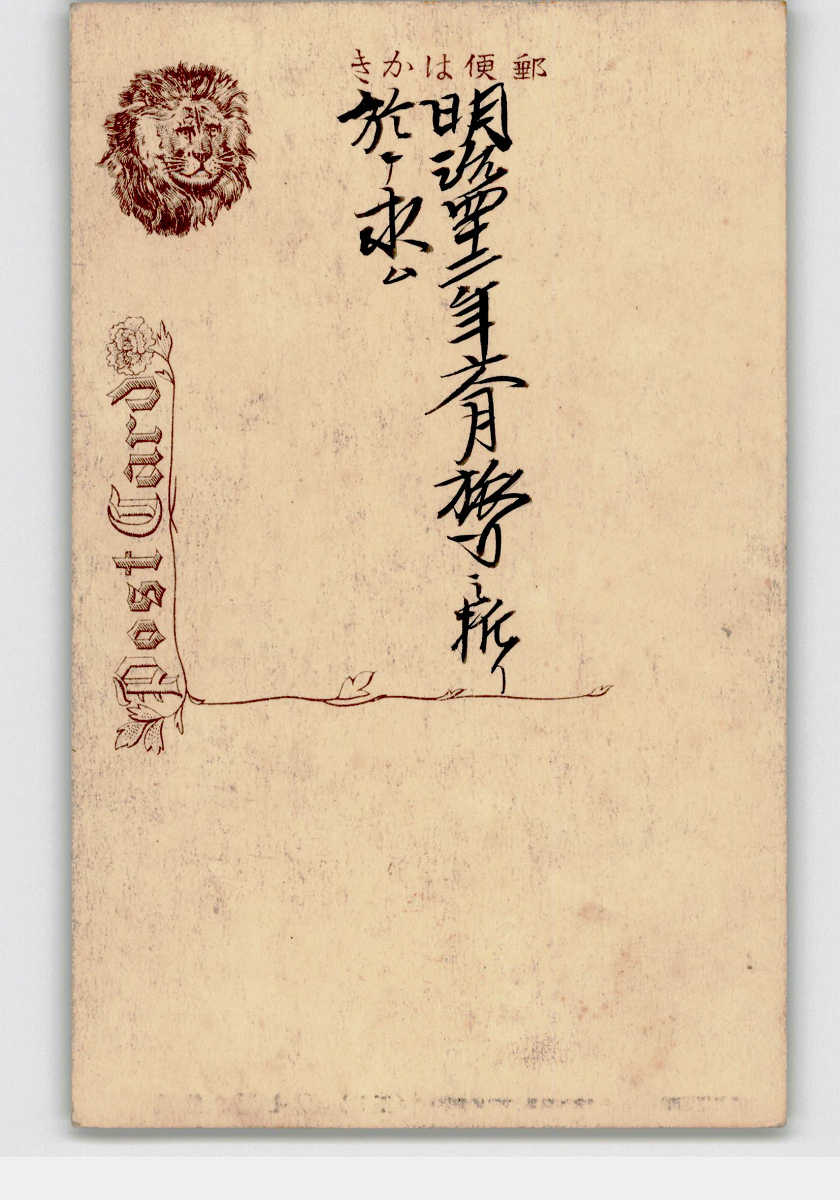 郵便はかき
明治四十二年六月旅行之析り
於テ求ム
Post Card